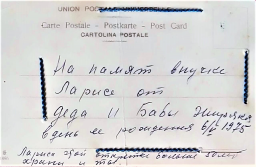 UNION POSTALE UNIVERSELLE
Carte Postale - Postkarte - Post Card
CARTOLINA POSTALE
На памят внучке
Ларисе от
деда и Бабы
в день ее рождения 6/V 1925
Лариса этой открытке больше
храни и ты.